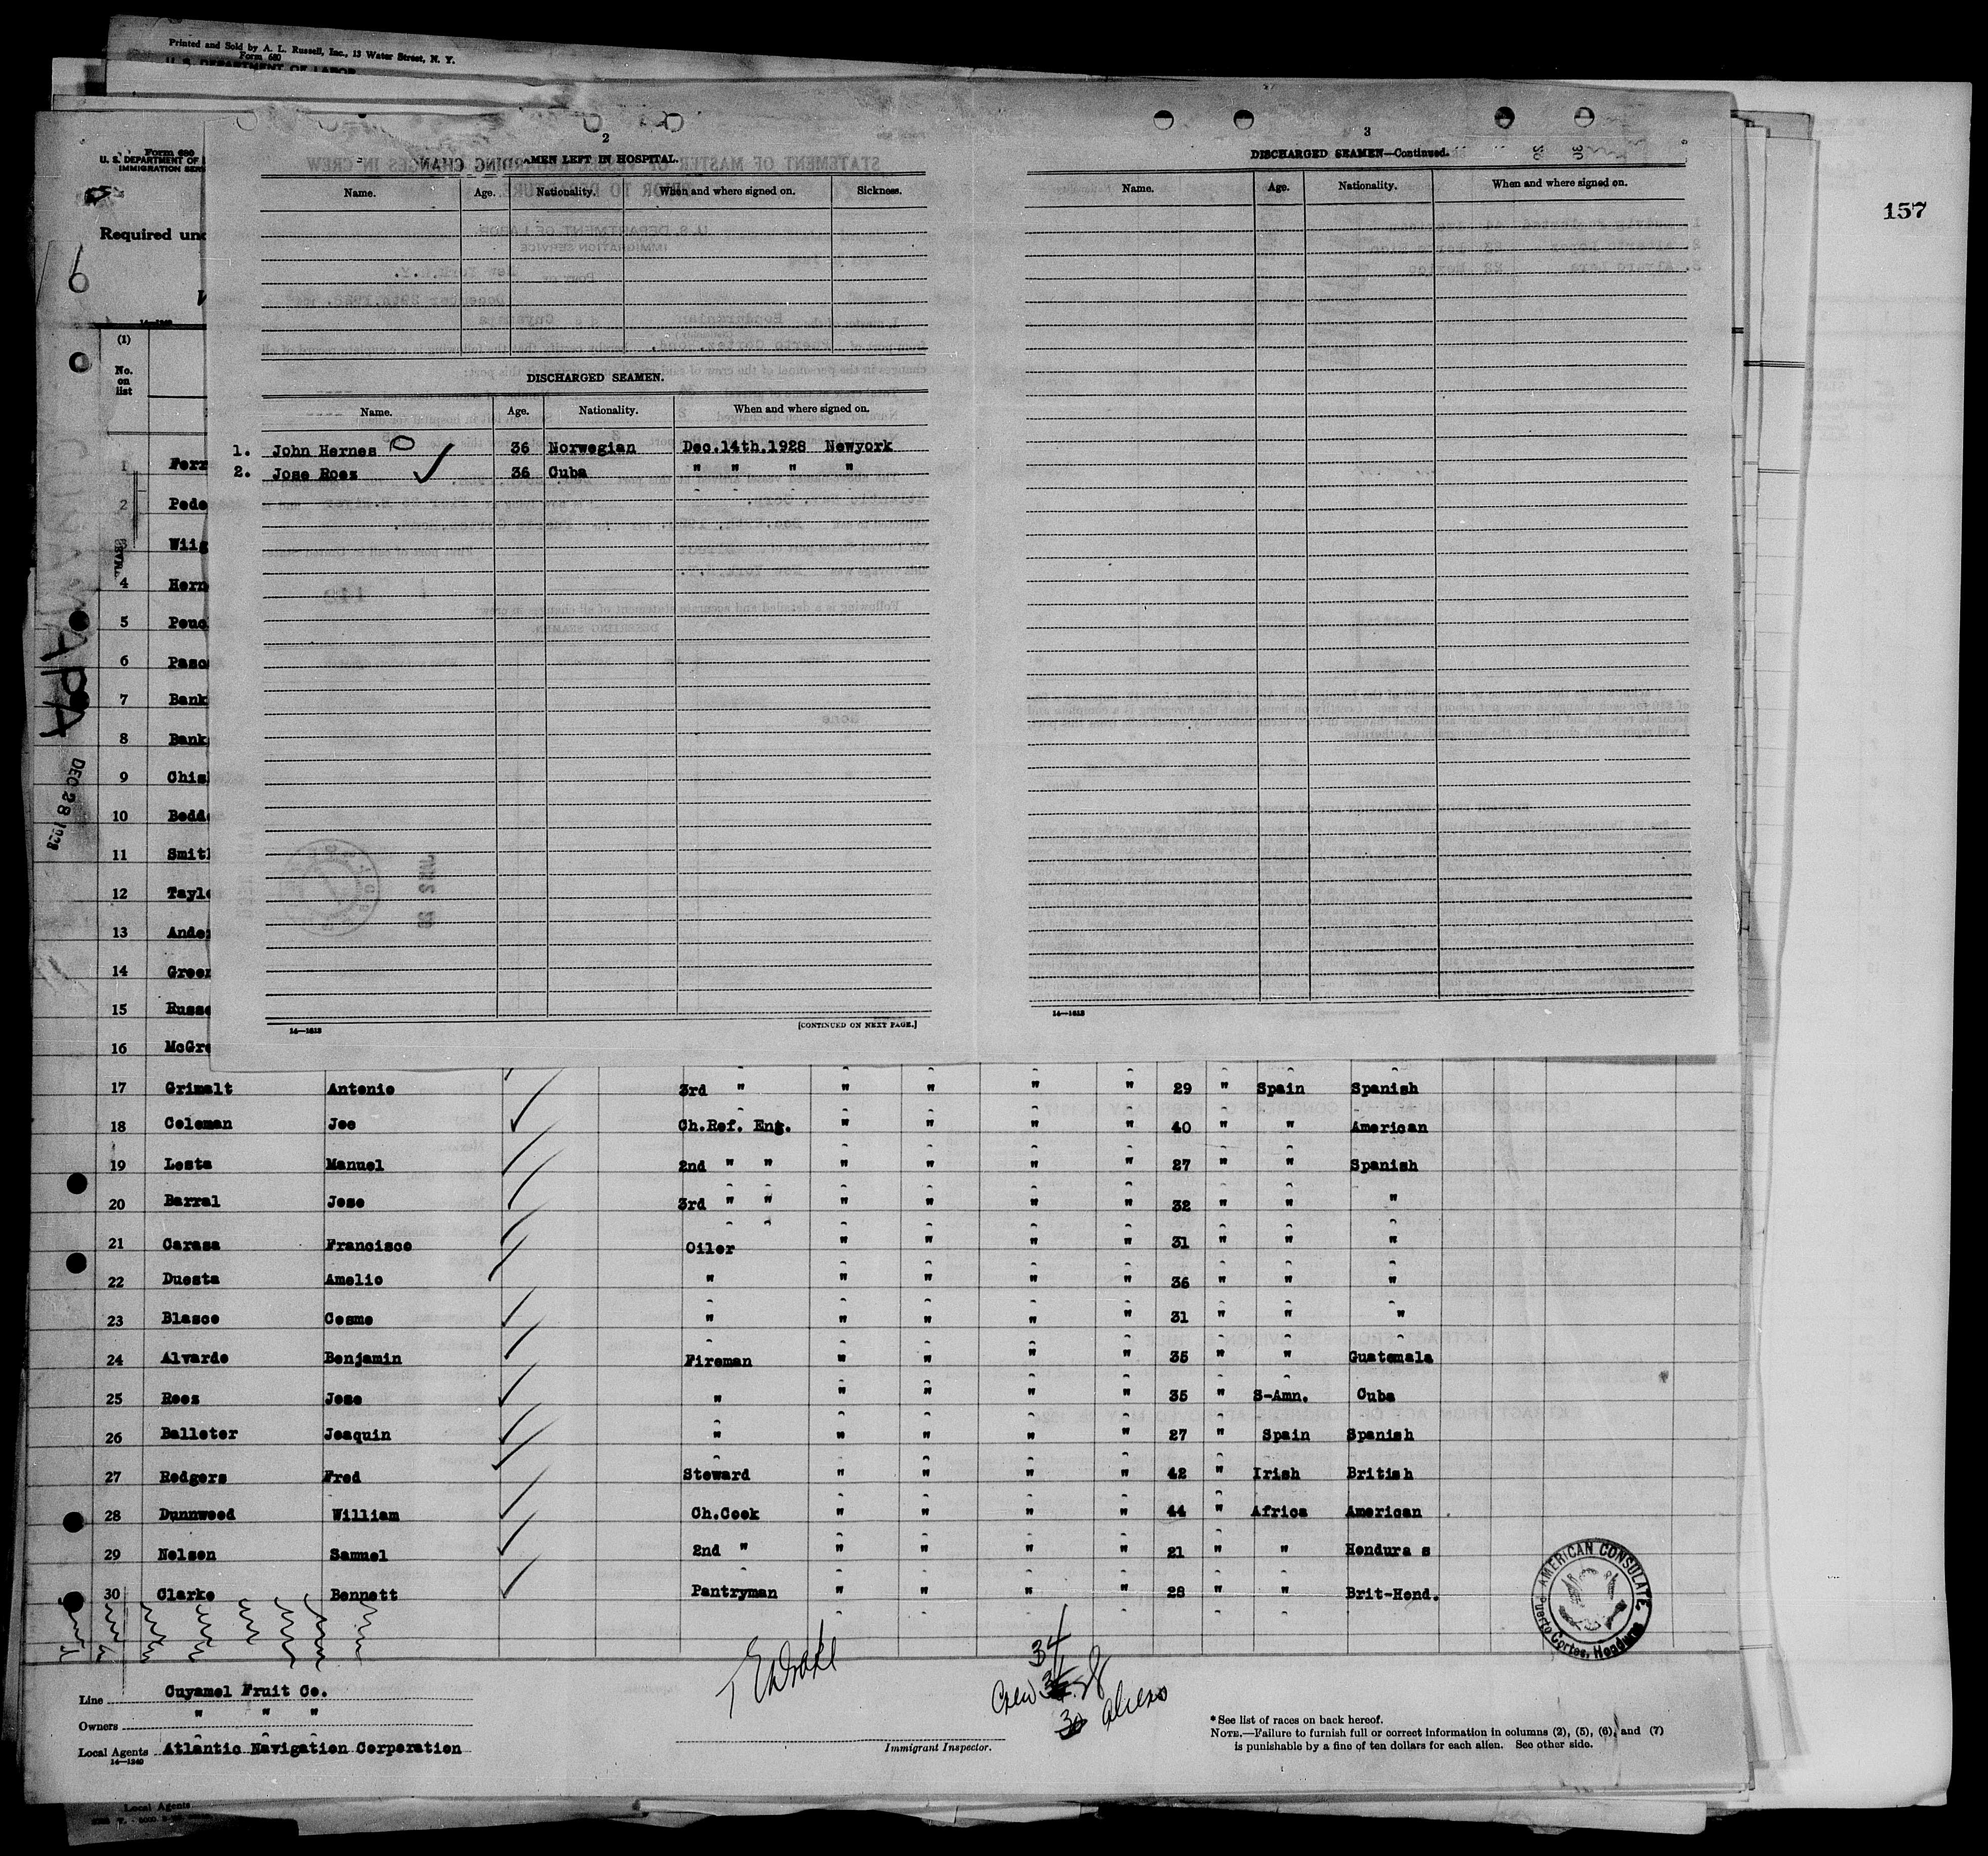 Printed and Sold by A. L. Russell, Inc., 13 Water Street, N. Y.
Form 680
U. S. DEPARTMENT OF LABOR
157
Form 680
U. S. DEPARTMENT OF
IMMIGRATION SER
Required und
14—1240
(1)
No.
on
list
2
AMEN LEFT IN HOSPITAL.
Name. Age. Nationality. When and where signed on. Sickness.
DISCHARGED SEAMEN.
Name. Age. Nationality. When and where signed on.
1. John Hernes 36 Norwegian Dec.14th.1928 Newyork
2. Jose Roez 36 Cuba " " " "
14—1613
[CONTINUED ON NEXT PAGE.]
3
DISCHARGED SEAMEN—Continued.
Name. Age. Nationality. When and where signed on.
14—1613
1 Ferr
2 Pede
Wiig
4 Hern
5 Pouc
6 Pasc
7 Bank
8 Bank
9 Chis
10 Bodd
11 Smit
12 Tayl
13 Ande
14 Green
15 Russe
16 McGre
17 Grimalt Antonio 3rd " " " " " 29 " Spain Spanish
18 Coleman Joe Ch.Ref. Eng. " " " " 40 " " American
19 Lesta Manuel 2nd " " " " " " 27 " " Spanish
20 Barral Jose 3rd " " " " " " 32 " " "
21 Carasa Francisco Oiler " " " " 31 " " "
22 Duesta Amelio " " " " " 36 " " "
23 Blasco Cosme " " " " " 31 " " "
24 Alvarde Benjamin Fireman " " " " 35 " " Guatemala
25 Roez Jose " " " " " 35 " S-Amn. Cuba
26 Balleter Joaquin " " " " " 27 " Spain Spanish
27 Rodgers Fred Steward " " " " 42 " Irish British
28 Dunnwood William Ch.Cook " " " " 44 " Africa American
29 Nelson Samuel 2nd " " " " " 21 " " Hondura s
30 Clarke Bennett Pantryman " " " " 28 " " Brit-Hond.
APA
DEC 28 1928
AMERICAN CONSULATE,
Puerto Cortes, Honduras
34
Crew
30 aliens
Line Cuyamel Fruit Co.
Owners " " "
Local Agents Atlantic Navigation Corporation
14—1240
Immigrant Inspector.
* See list of races on back hereof.
NOTE.—Failure to furnish full or correct information in columns (2), (5), (6), and (7)
is punishable by a fine of ten dollars for each alien. See other side.
Local Agents